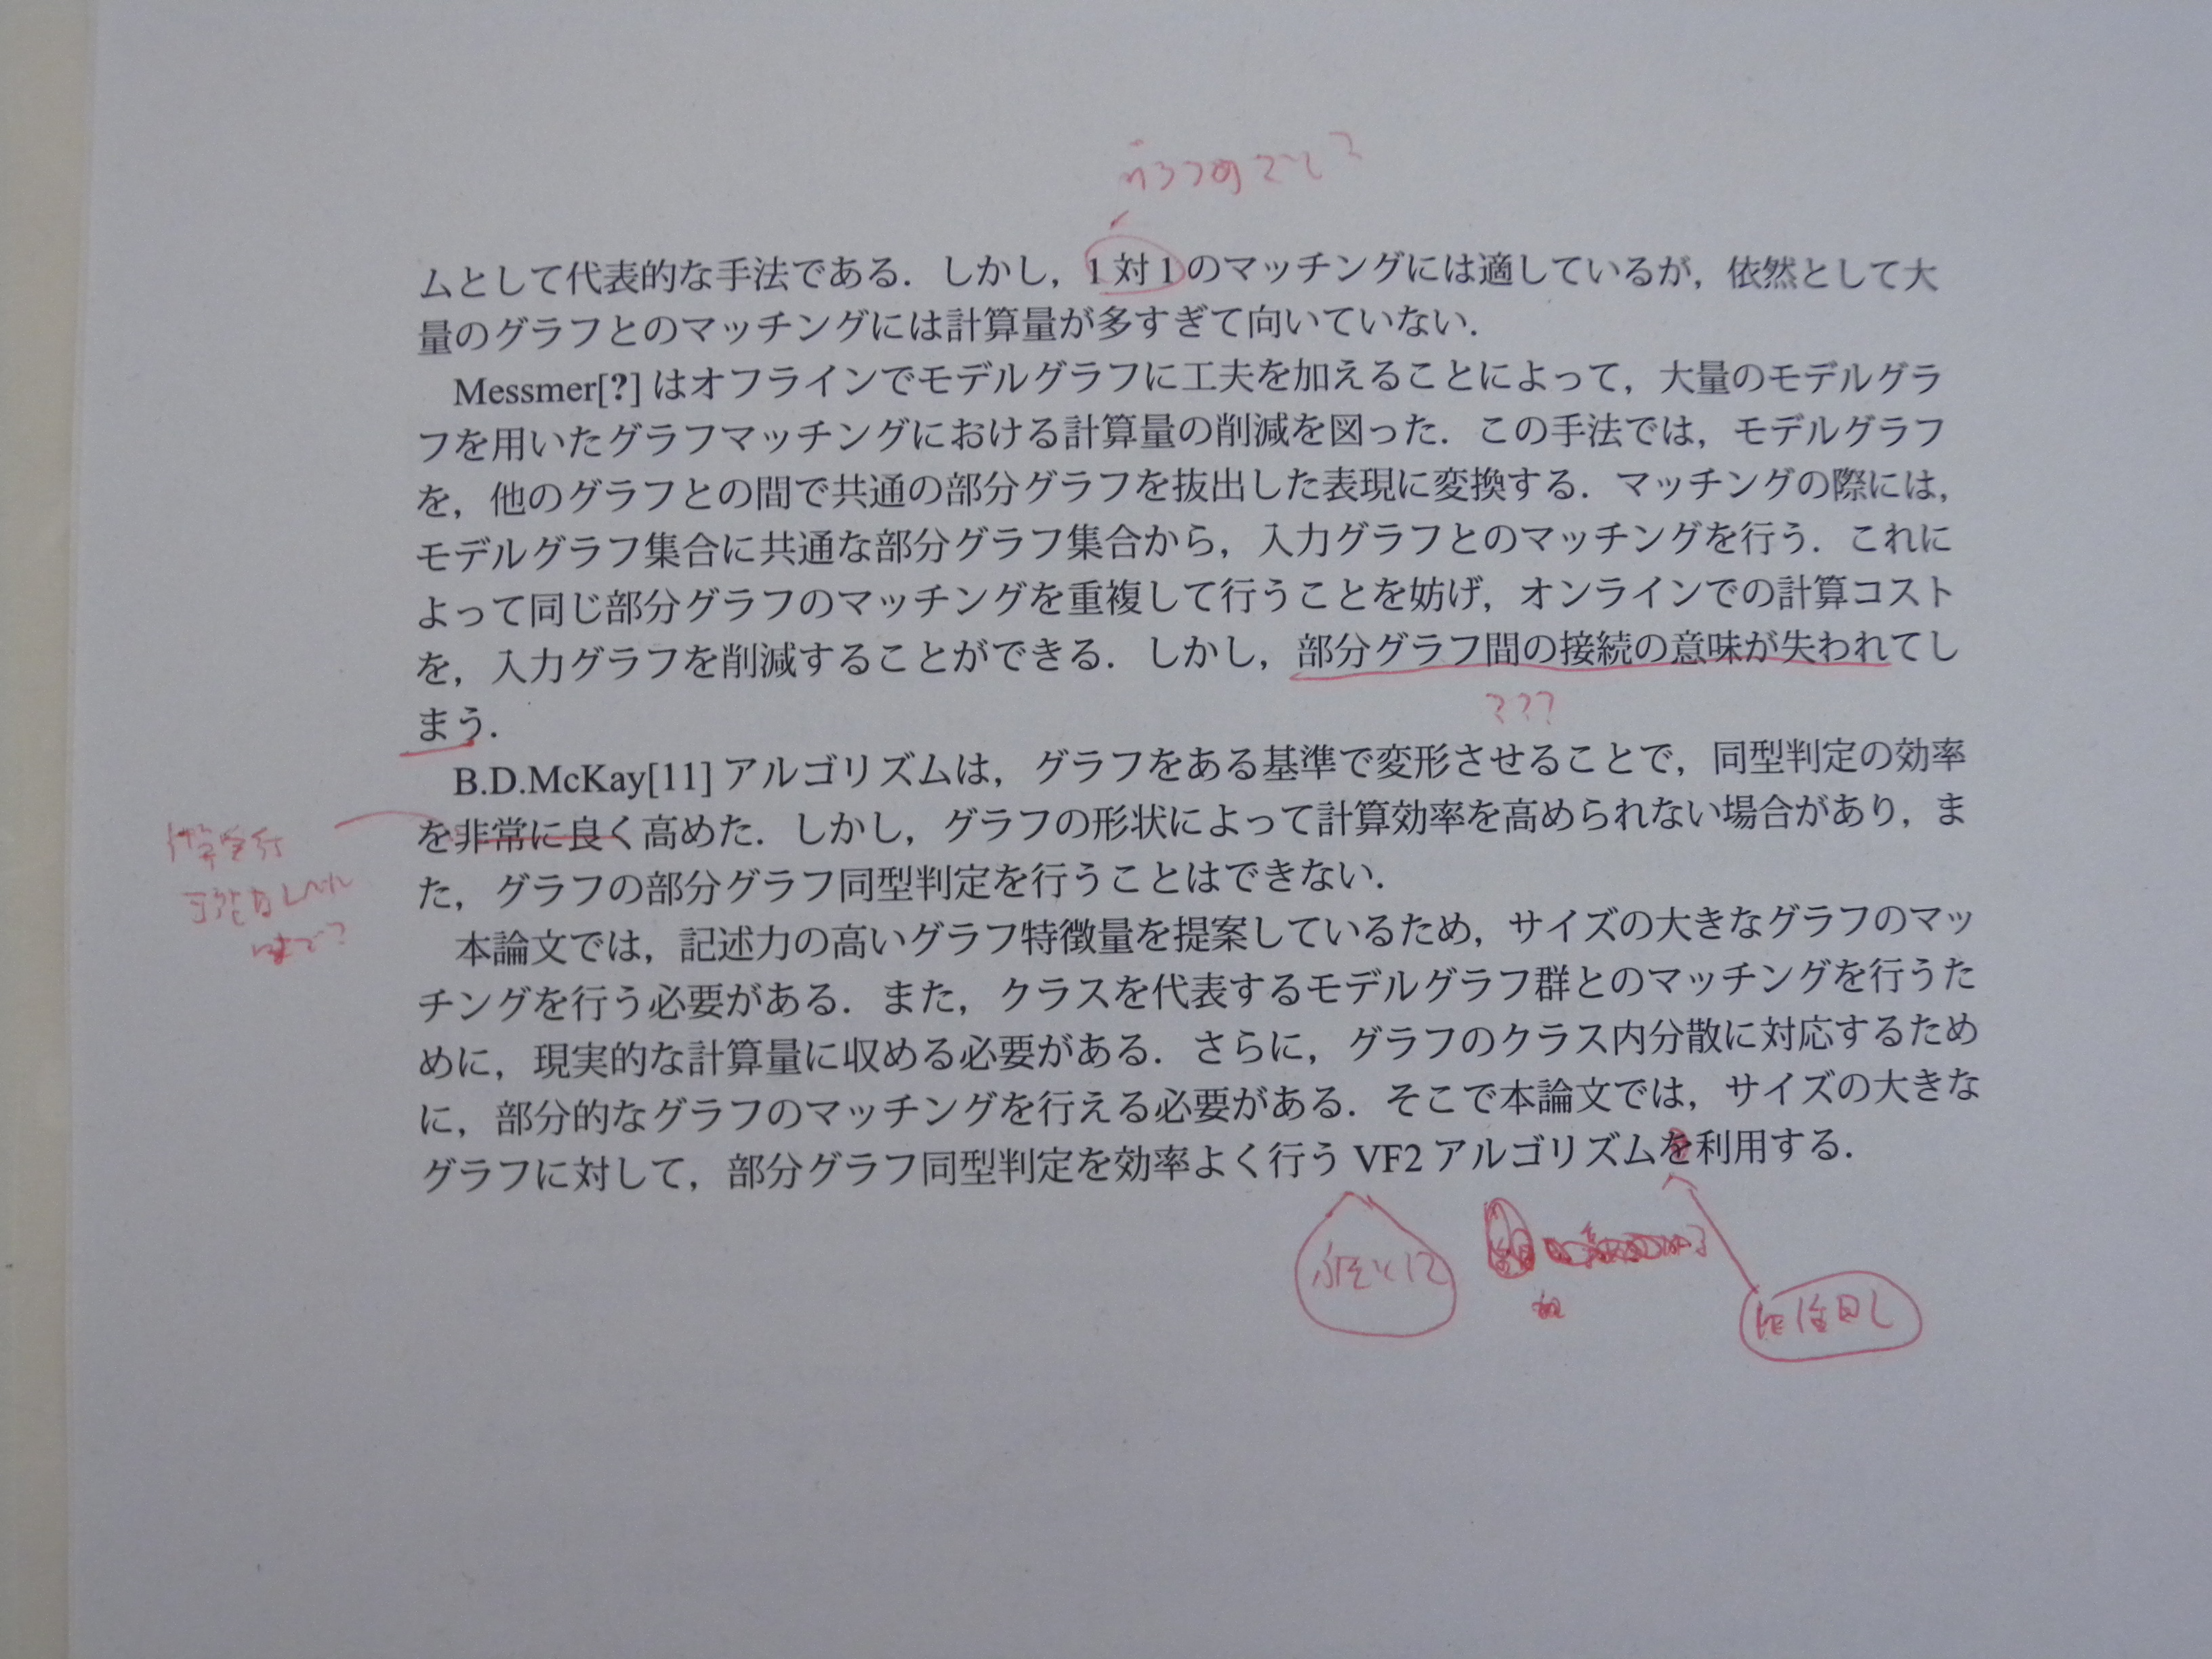 ムとして代表的な手法である．しかし，1 対 1 のマッチングには適しているが，依然として大
量のグラフとのマッチングには計算量が多すぎて向いていない．
Messmer[?] はオフラインでモデルグラフに工夫を加えることによって，大量のモデルグラ
フを用いたグラフマッチングにおける計算量の削減を図った．この手法では，モデルグラフ
を，他のグラフとの間で共通の部分グラフを抜出した表現に変換する．マッチングの際には，
モデルグラフ集合に共通な部分グラフ集合から，入力グラフとのマッチングを行う．これに
よって同じ部分グラフのマッチングを重複して行うことを妨げ，オンラインでの計算コスト
を，入力グラフを削減することができる．しかし，部分グラフ間の接続の意味が失われてし
???
まう．
B.D.McKay[11] アルゴリズムは，グラフをある基準で変形させることで，同型判定の効率
を非常に良く高めた．しかし，グラフの形状によって計算効率を高められない場合があり，ま
た，グラフの部分グラフ同型判定を行うことはできない．
本論文では，記述力の高いグラフ特徴量を提案しているため，サイズの大きなグラフのマッ
チングを行う必要がある．また，クラスを代表するモデルグラフ群とのマッチングを行うた
めに，現実的な計算量に収める必要がある．さらに，グラフのクラス内分散に対応するため
に，部分的なグラフのマッチングを行える必要がある．そこで本論文では，サイズの大きな
グラフに対して，部分グラフ同型判定を効率よく行う VF2 アルゴリズムを利用する．